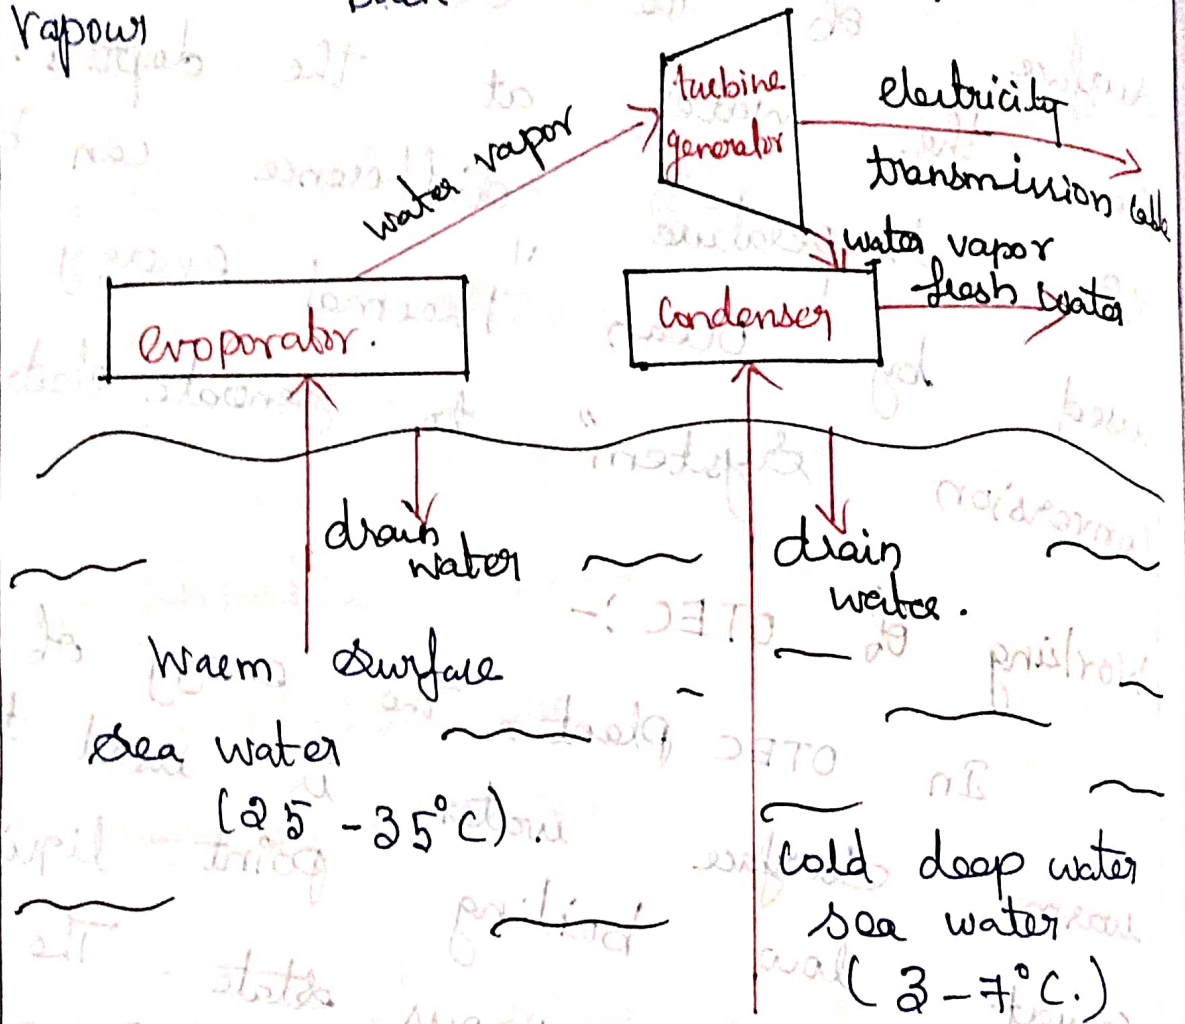 Vapour
turbine
generator
electricity
transmission cable
water vapor
water vapor
fresh water
evoporator.
Condenser
drain
water
drain
water.
Warm surface
sea water
(25-35°C).
cold deep water
sea water
(3-7°C.)